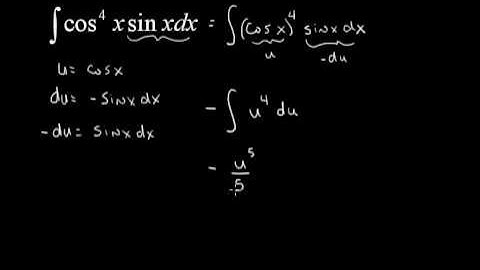 ∫cos⁴ x sin xdx = ∫(cosx)⁴ sinx dx
u -du
u = cosx
du = -sinx dx
-du = sinx dx
- ∫ u⁴ du
- u⁵/5